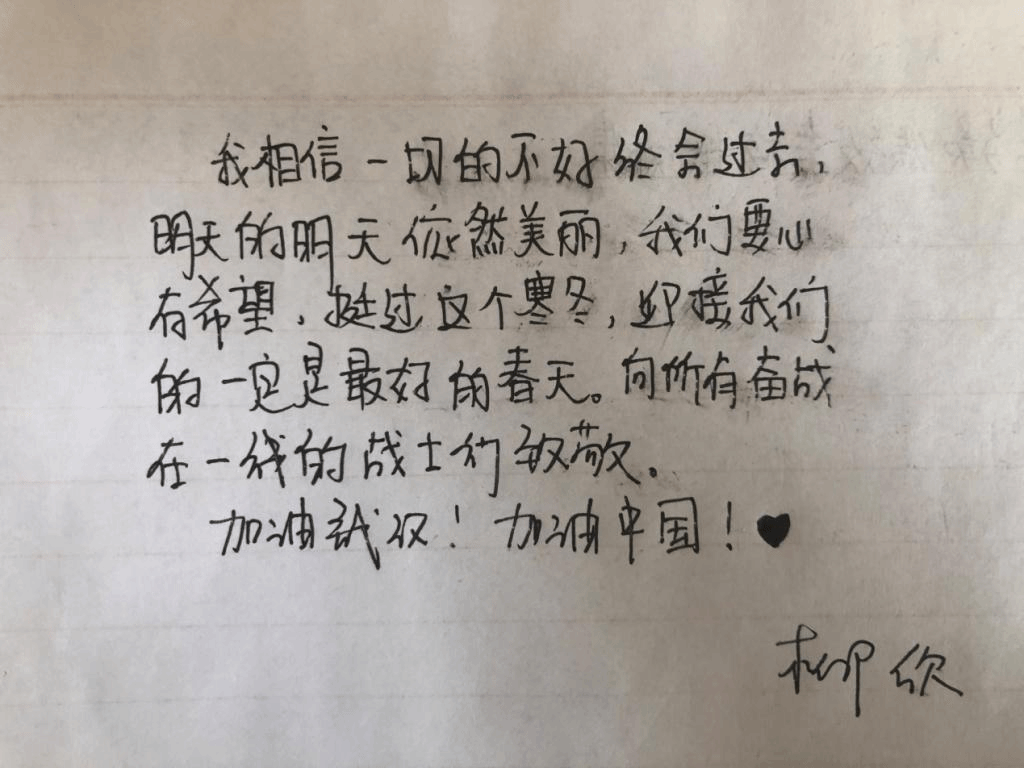 我相信一切的不好终会过去,
明天的明天依然美丽,我们要心
有希望,挺过这个寒冬,迎接我们
的一定是最好的春天。向所有奋战
在一线的战士们致敬。
加油武汉!加油中国!♥
柳欣